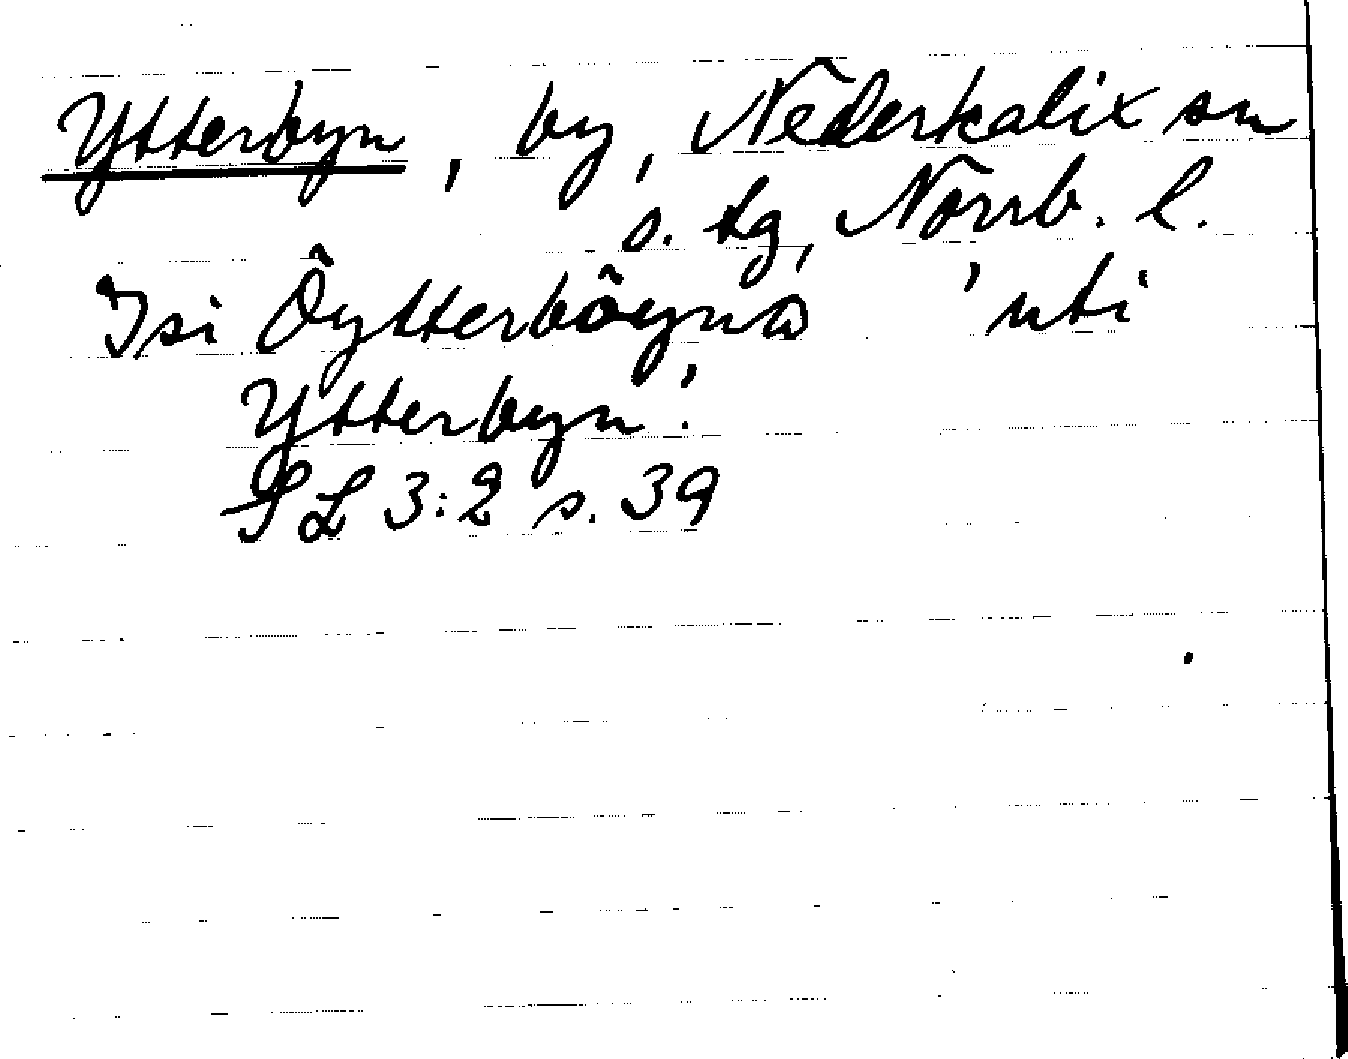 Ytterbyn, by, Nederkalix sn
s. tg, Norrb. l.
Isi Ôytterbôynå 'uti
Ytterbyn'.
SL 3:2 s. 39